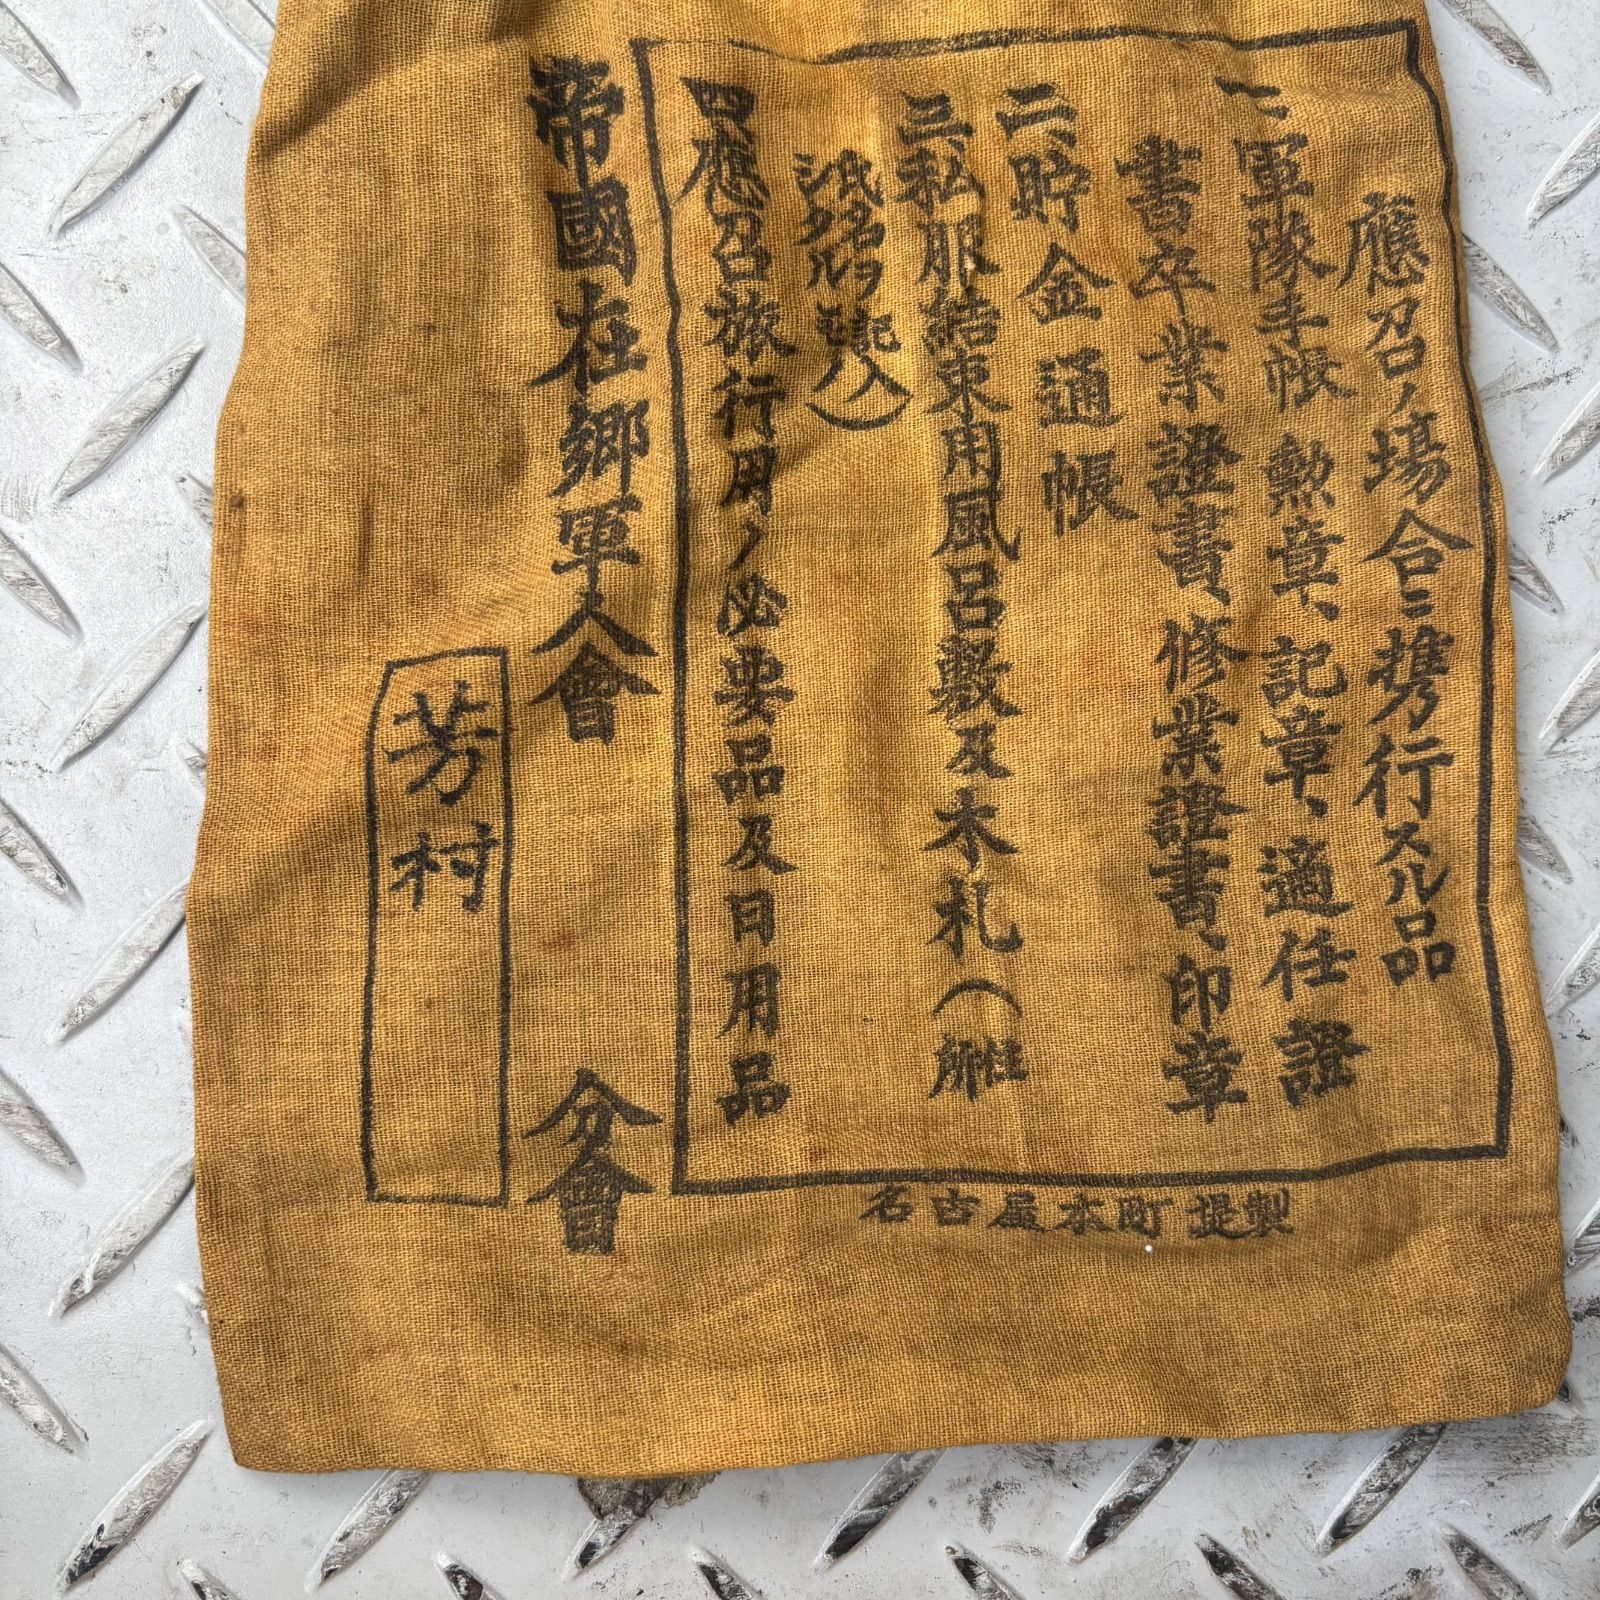 應召ノ場合ニ携行スル品
一軍隊手帳、勲章、記章、適任證
書卒業證書、修業證書、印章
二、貯金通帳
三、私服結束用風呂敷及木札(住所
氏名ヲ記入)
四應召旅行用ノ必要品及日用品
帝國在郷軍人會 分會
芳村
名古屋本町 堤製